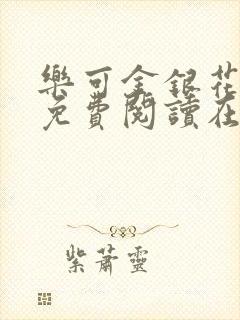 樂可金銀花
免費閱讀在
紫蕭靈